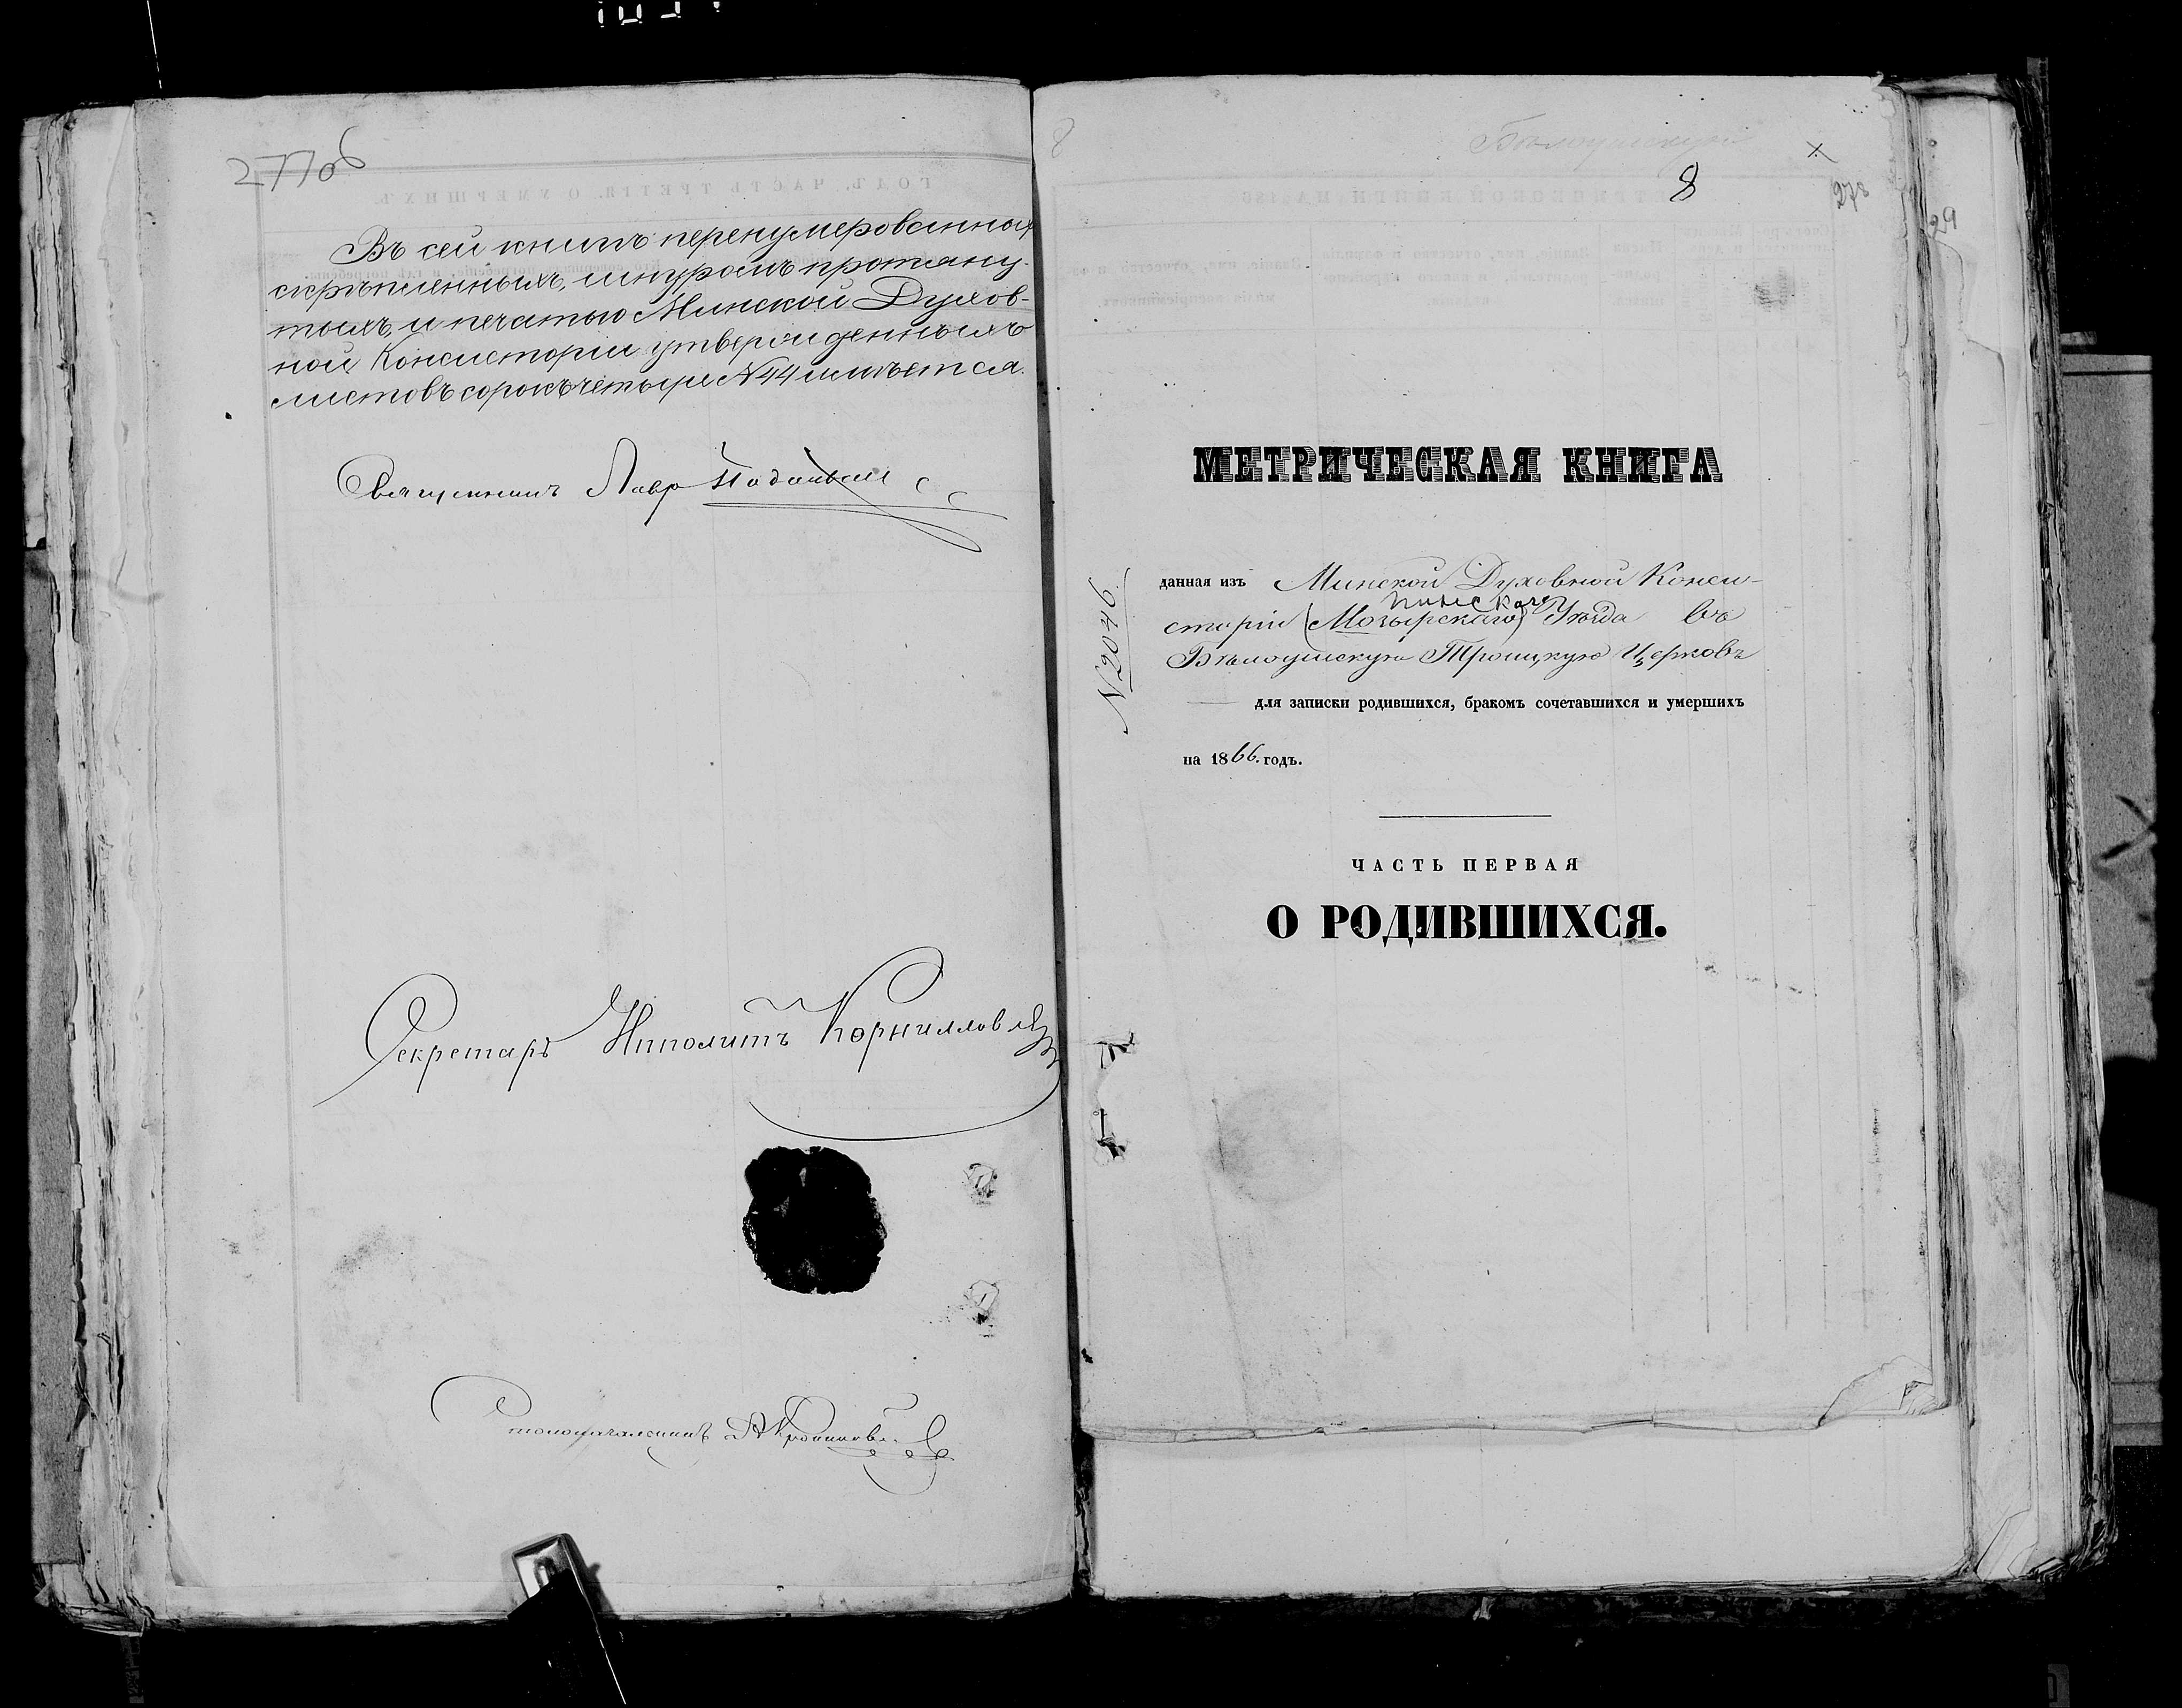 277об
Въ сей книгѣ перенумерованныхъ
скрѣпленныхъ, шнуромъ протяну-
тыхъ, и печатью Минской Духов-
ной Консисторіи утвержденныхъ
листовъ сорокъ четыре N 44 имѣется.
Священникъ Лавр
Секретарь Ипполитъ Корнилловичъ
Столоначальникъ
8
Бѣлоушской
8
278
29
МЕТРИЧЕСКАЯ КНИГА
N 2046.
данная изъ Минской Духовной Конси-
Пинскаго
сторіи (Мозырскаго) Уѣзда въ
Бѣлоушскую Троицкую Церковь
для записки родившихся, бракомъ сочетавшихся и умершихъ
на 1866. годъ.
ЧАСТЬ ПЕРВАЯ
О РОДИВШИХСЯ.